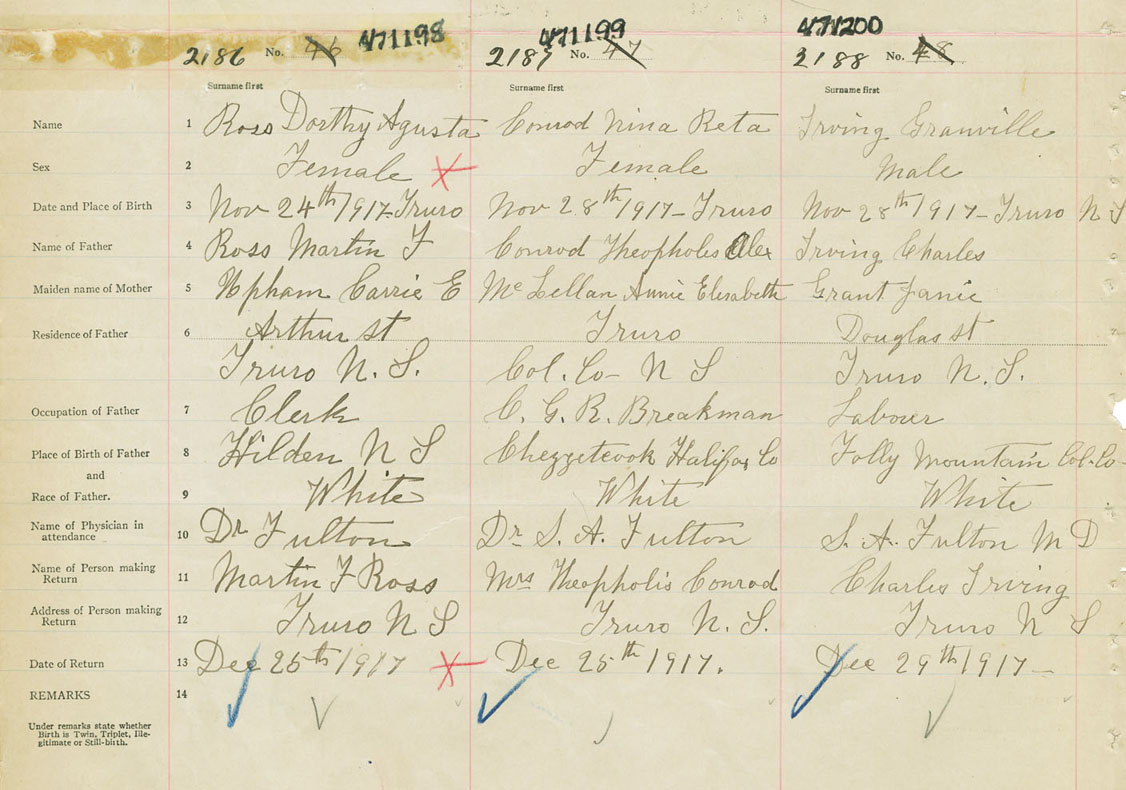 471198 471199 471200
2186 No. 46 2187 No. 47 2188 No. 48
Surname first Surname first Surname first
Name 1 Ross Dorthy Agusta Conrod Nina Reta Irving Granville
Sex 2 Female Female Male
Date and Place of Birth 3 Nov 24th/1917-Truro Nov 28th/1917-Truro Nov 28th/1917-Truro N S
Name of Father 4 Ross Martin F Conrod Theopholes Alex Irving Charles
Maiden name of Mother 5 Upham Carrie E McLellan Annie Elizabeth Grant Janie
Residence of Father 6 Arthur St Truro Douglas st
Truro N. S. Col. Co- N S Truro N. S.
Occupation of Father 7 Clerk C. G. R. Breakman Labour
Place of Birth of Father 8 Hilden N S Chezzetcook Halifax Co Folly Mountain Col. Co-
and
Race of Father. 9 White White White
Name of Physician in
attendance 10 Dr Fulton Dr S. A. Fulton S. A. Fulton M D
Name of Person making
Return 11 Martin F Ross Mrs Theopholis Conrod Charles Irving
Address of Person making
Return 12 Truro N S Truro N. S. Truro N S
Date of Return 13 Dec 25th/1917 Dec 25th 1917. Dec 29th/1917-
REMARKS 14
Under remarks state whether
Birth is Twin, Triplet, Ille-
gitimate or Still-birth.